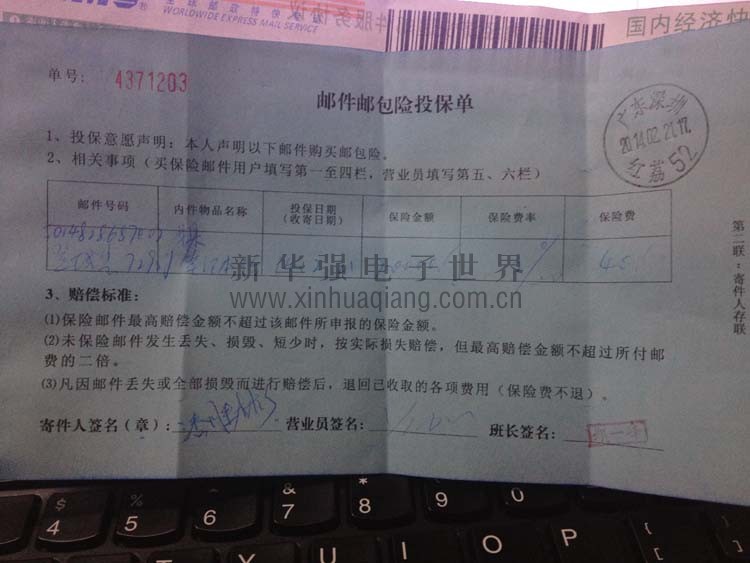 WORLDWIDE EXPRESS MAIL SERVICE
国内经济快
单号: 4371203
邮件邮包险投保单
广东深圳
2014.02.21.17
红荔 52
1、投保意愿声明：本人声明以下邮件购买邮包险。
2、相关事项（买保险邮件用户填写第一至四栏，营业员填写第五、六栏）
邮件号码 内件物品名称 投保日期（收寄日期） 保险金额 保险费率 保险费
新华强电子世界
www.xinhuaqiang.com.cn
3、赔偿标准：
(1)保险邮件最高赔偿金额不超过该邮件所申报的保险金额。
(2)未保险邮件发生丢失、损毁、短少时，按实际损失赔偿，但最高赔偿金额不超过所付邮
费的二倍。
(3)凡因邮件丢失或全部损毁而进行赔偿后，退回已收取的各项费用（保险费不退）。
寄件人签名（章）: 营业员签名: 班长签名:
第二联：寄件人存联
$ % ^ & * ( ) {
4 5 6 7 8 9 0 P [
T Y U I O